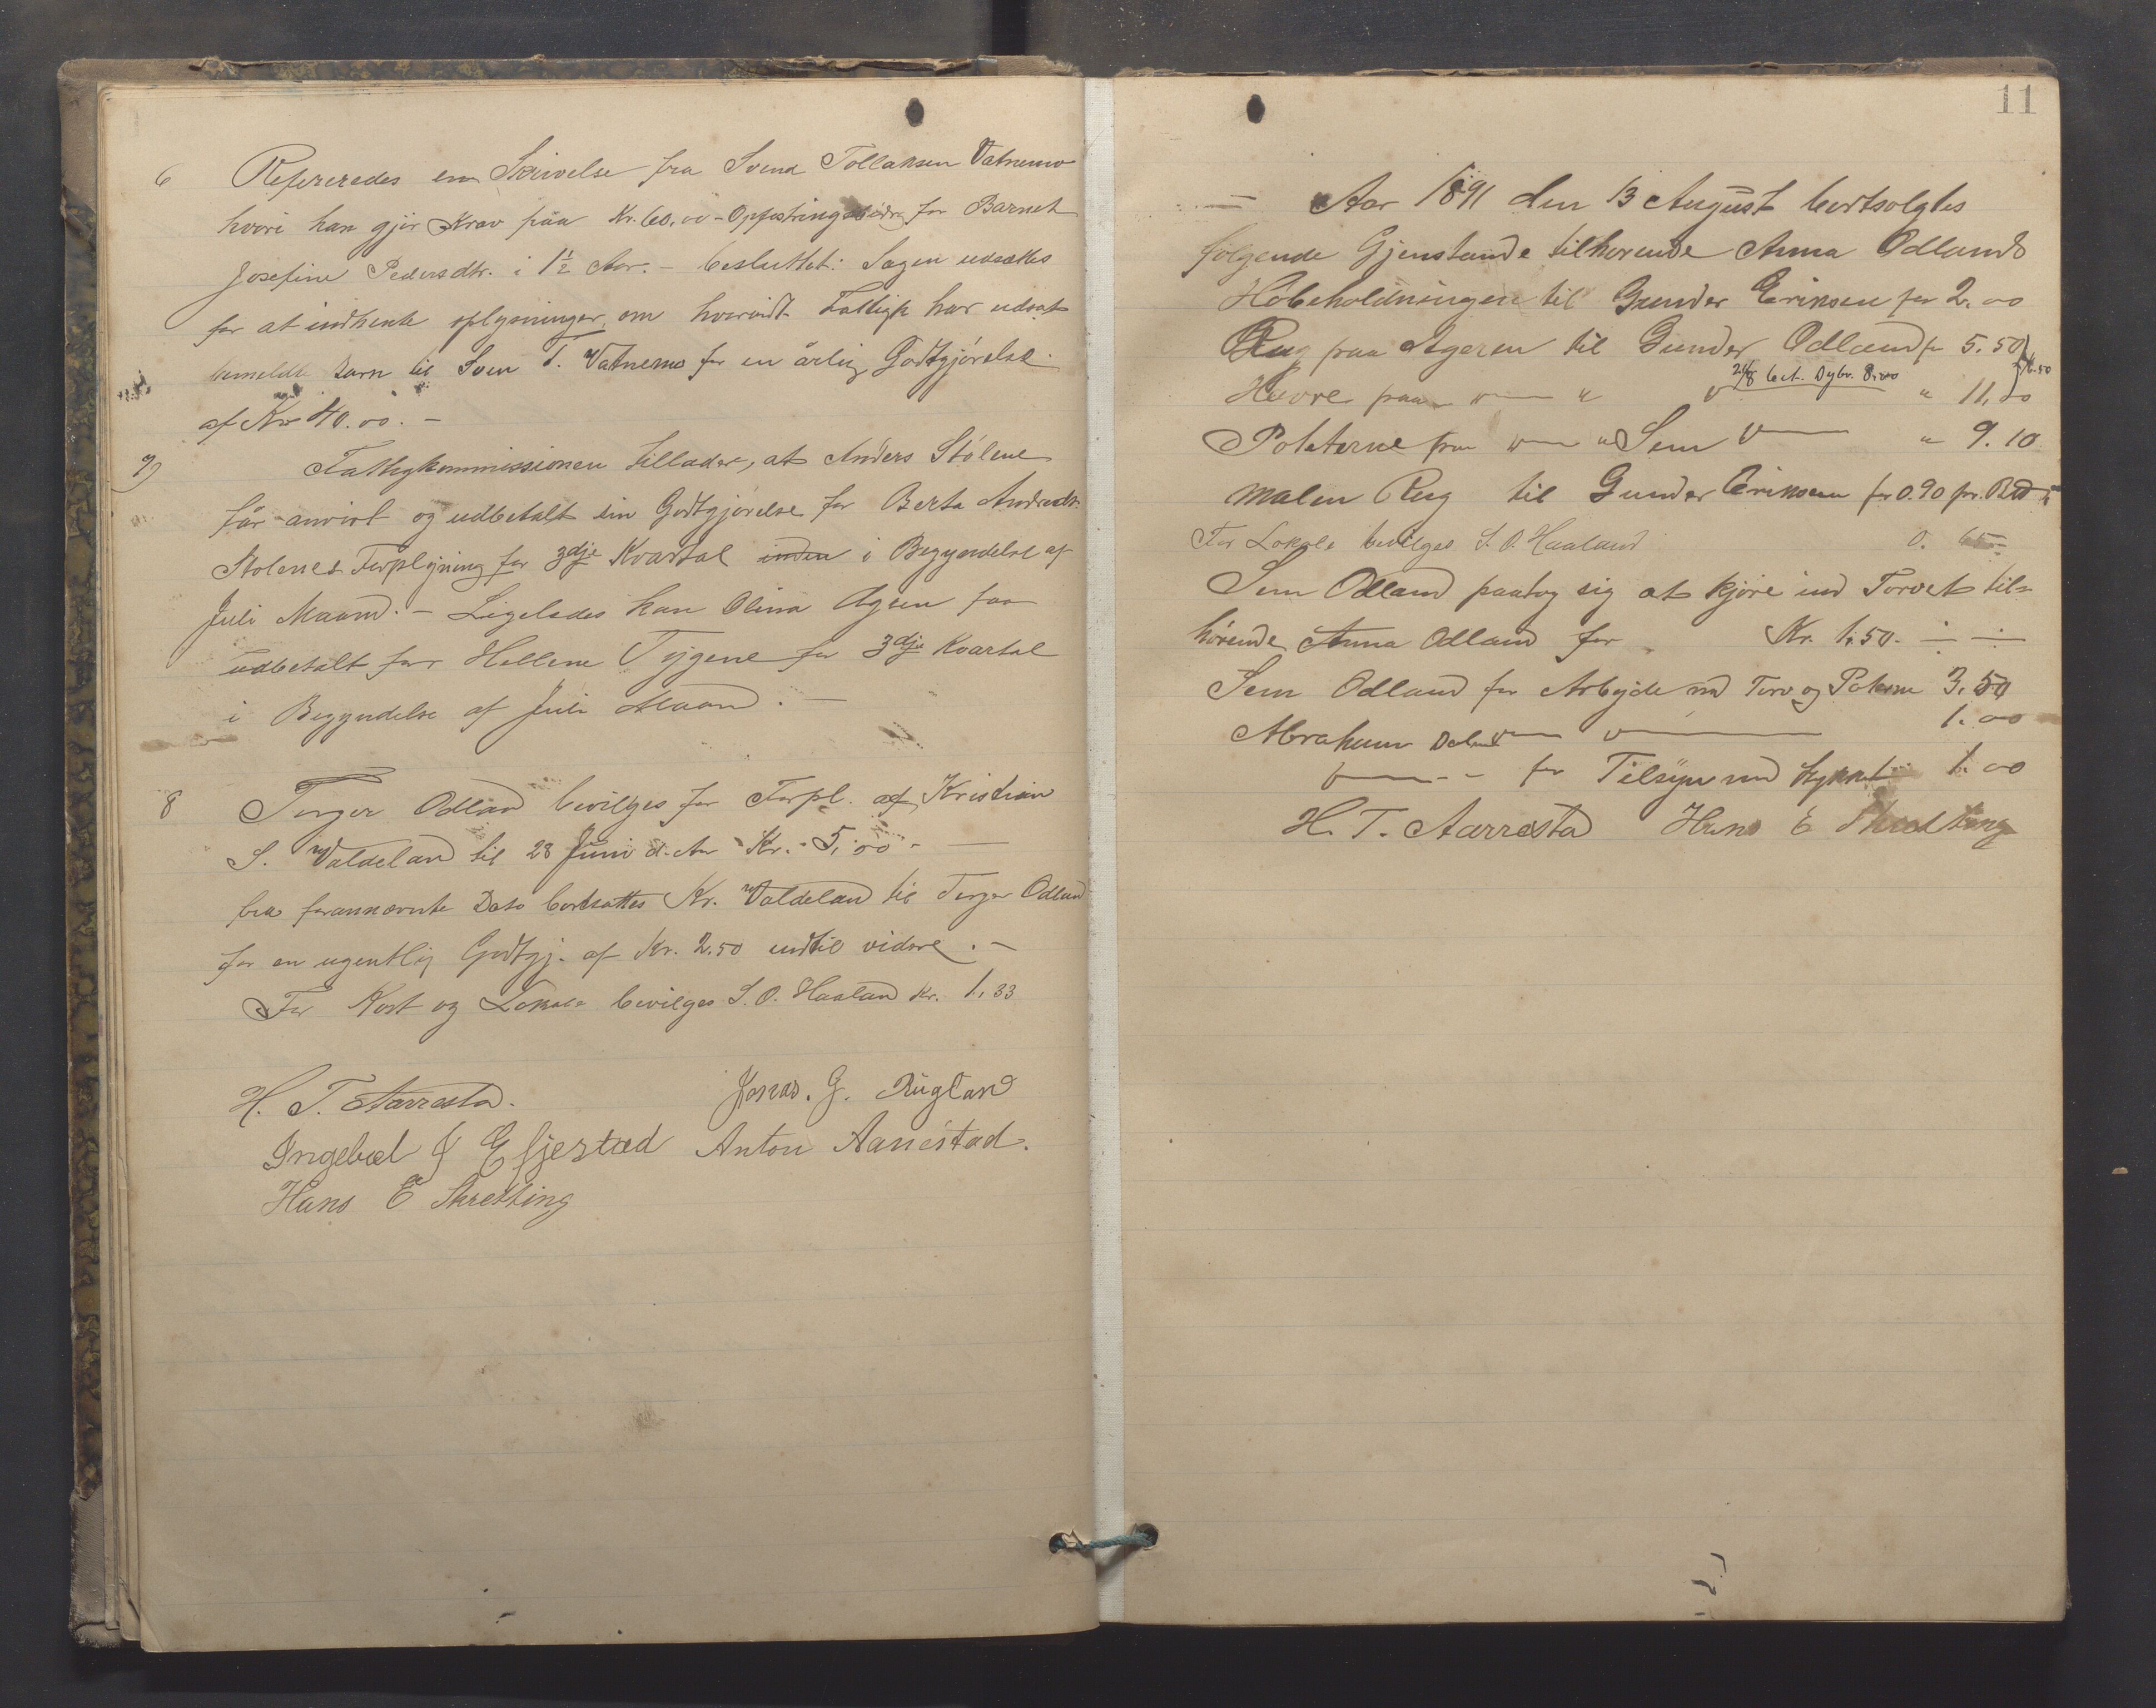 6 Refereredes en Skrivelse fra Svend Tollaksen Vatnemo
hvori han gjør Krav paa Kr. 60,00 - Opfostringsbidr. for Barnet
Josefine Pedersdtr. i 1½ Aar. - besluttet: Sagen udsættes
for at indhente oplysninger, om hvorvidt Fattigk har udsat
bemeldte Barn til Sven T. Vatnemo for en årlig Godtgjørelse
af Kr 40.00. -
7) Fattigkommissionen tillader, at Anders Stölene
får anvist og udbetalt sin Godtgjørelse for Berta Andredtr.
Stolenes Forplejning for 3dje Kvartal inden i Begyndelse af
Juli Maand. - Ligeledes kan Olina Ogsen faa
udbetalt for Hellene Tijgene for 3dje Kvartal
i Begyndelse af Juli Maand. -
8 Torger Odland bevilges for Forpl. af Kristian
S. Valdeland til 23 Juni d. Aar Kr. 5,00 -
fra forannævnte Dato bortsattes Kr. Valdeland til Torger Odland
for en ugentlig Godtgj. af Kr. 2.50 indtil videre. -
For Kost og Lokale bevilges S. O. Haaland Kr. 1,33
H. T. Aarrestad. Jonas. G. Rugland
Ingebret J Efjestad Anton Aanestad.
Hans E Skretting
11
Aar 1891 den 13 August bortsolgtes
følgende Gjenstande tilhorende Anna Odland
Höbeholdningen til Gunder Eriksen for 2.00
Rug paa Ageren til Gunder Odland for 5.50
26/8 bet. Dybv. 8.00
Havre paa " " " 11,00
Poteterne paa " " Sem " 9.10
malen Rug til Gunder Eriksen for 0.90 pr.
For Lokale bevilges S. O. Haaland 0.
Sem Odland paatog sig at kjöre ind Torvet til-
hörende Anna Odland for Kr. 1.50. - -
Sem Odland for Arbejde med Torv og Poteterne 3.50
Abraham 1.00
for Tilsyn med 1.00
H. T. Aarrestad Hans E Skretting